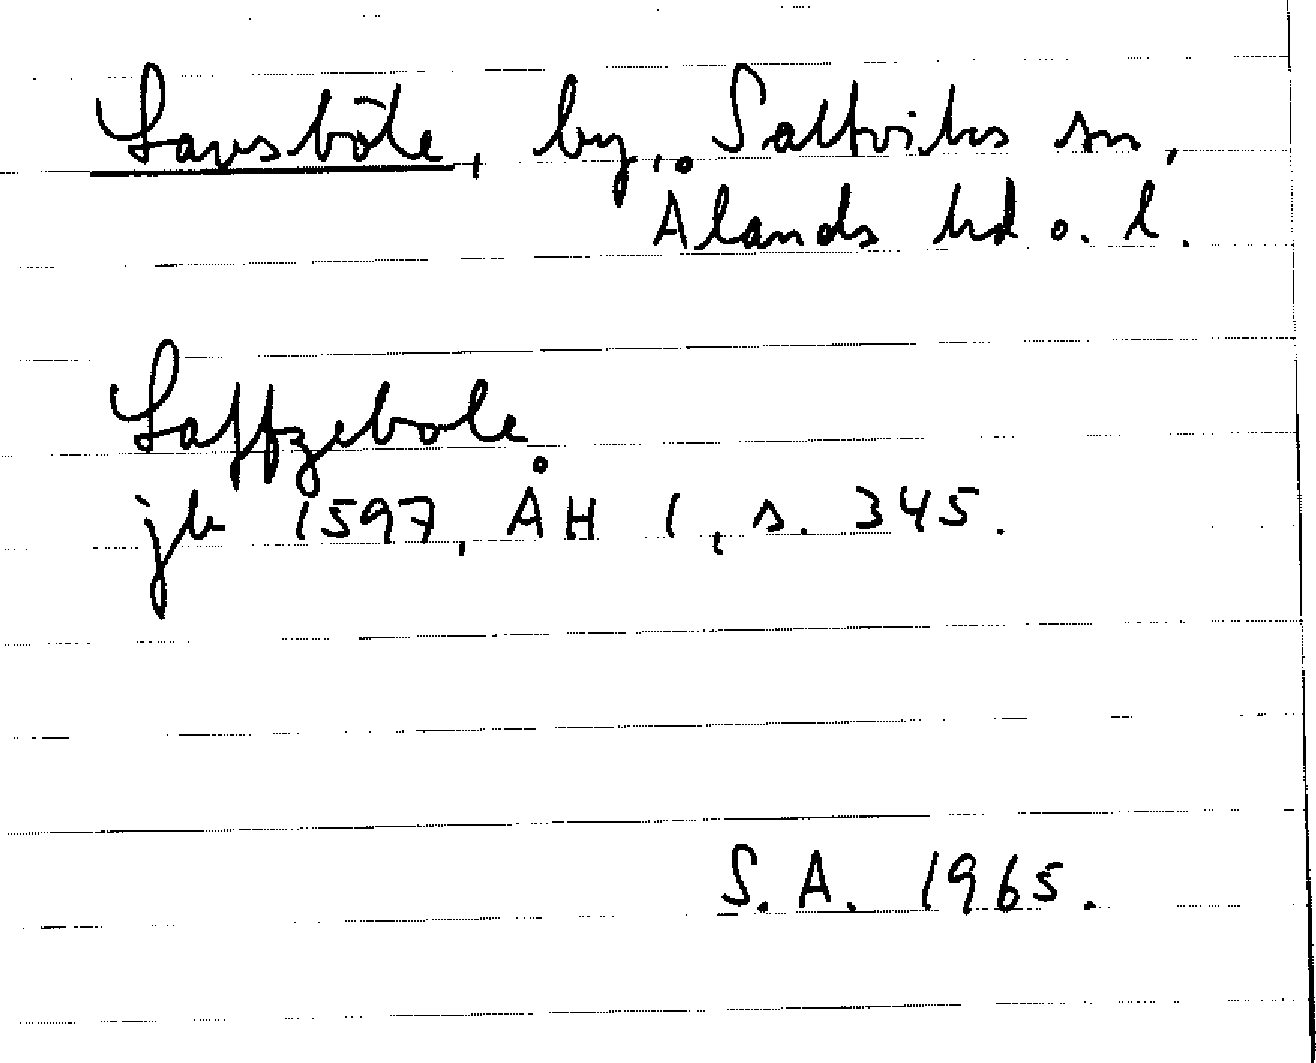 Lavsböle, by, Saltviks sn,
Ålands hd o. l.
Laffzebole
jb 1597, ÅH 1, s. 345.
S.A. 1965.